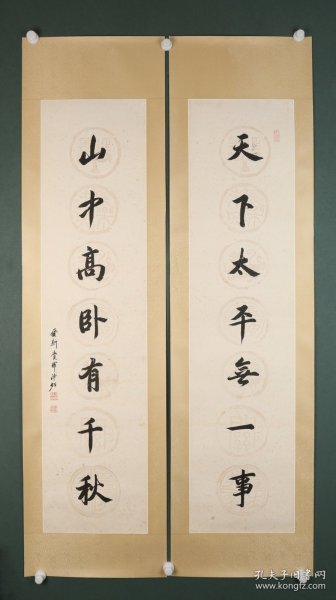 天下太平無一事
山中高卧有千秋
孔夫子旧书网
www.kongfz.com